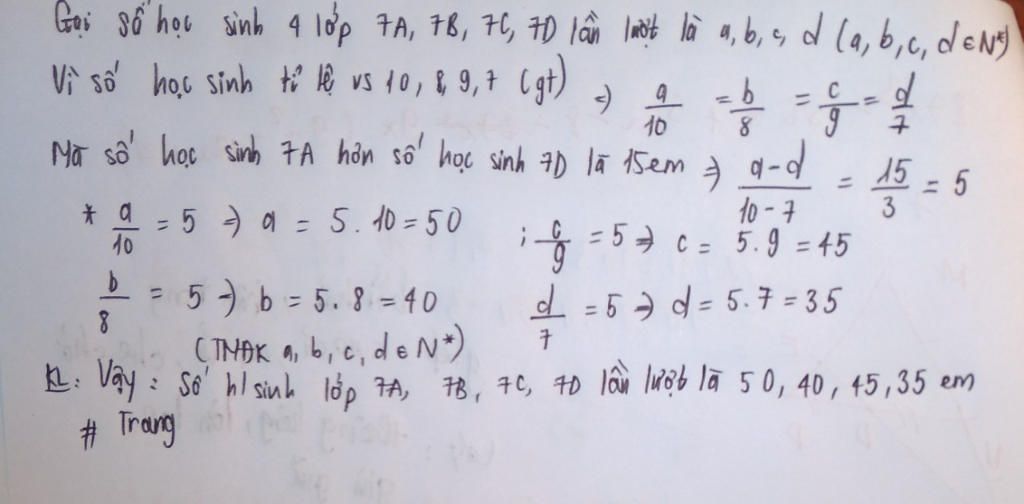 Gọi số học sinh 4 lớp 7A, 7B, 7C, 7D lần lượt là a, b, c, d (a, b, c, d ∈ N*)
Vì số học sinh tỉ lệ vs 10, 8, 9, 7 (gt) => a/10 = b/8 = c/9 = d/7
Mà số học sinh 7A hơn số học sinh 7D là 15em => a-d/10-7 = 15/3 = 5
* a/10 = 5 => a = 5.10 = 50 ; c/9 = 5 => c = 5.9 = 45
b/8 = 5 => b = 5.8 = 40 d/7 = 5 => d = 5.7 = 35
(TMĐK a, b, c, d ∈ N*)
KL: Vậy: Số h/sinh lớp 7A, 7B, 7C, 7D lần lượt là 50, 40, 45, 35 em
# Trang